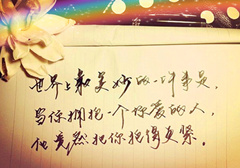 世界上最美妙的一件事是，
当你拥抱一个你爱的人，
他竟然把你抱得更紧。